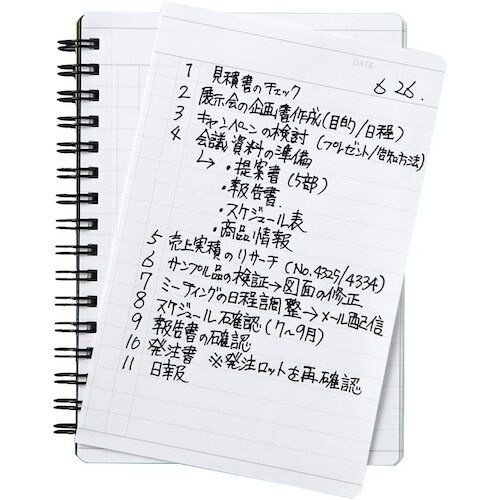 DATE
6 26.
1 見積書のチェック
2 展示会の企画書作成(目的/日程)
3 キャンペーンの検討 (プレゼント/告知方法)
4 会議資料の準備
↳ ・提案書 (5部)
・報告書
・スケジュール表
・商品情報
5 売上実績のリサーチ (No.4325/4334)
6 サンプル品の検証→図面の修正
7 ミーティングの日程調整→メール配信
8 スケジュール確認 (7〜9月)
9 報告書の確認
10 発注書 ※発注ロットを再確認
11 日報